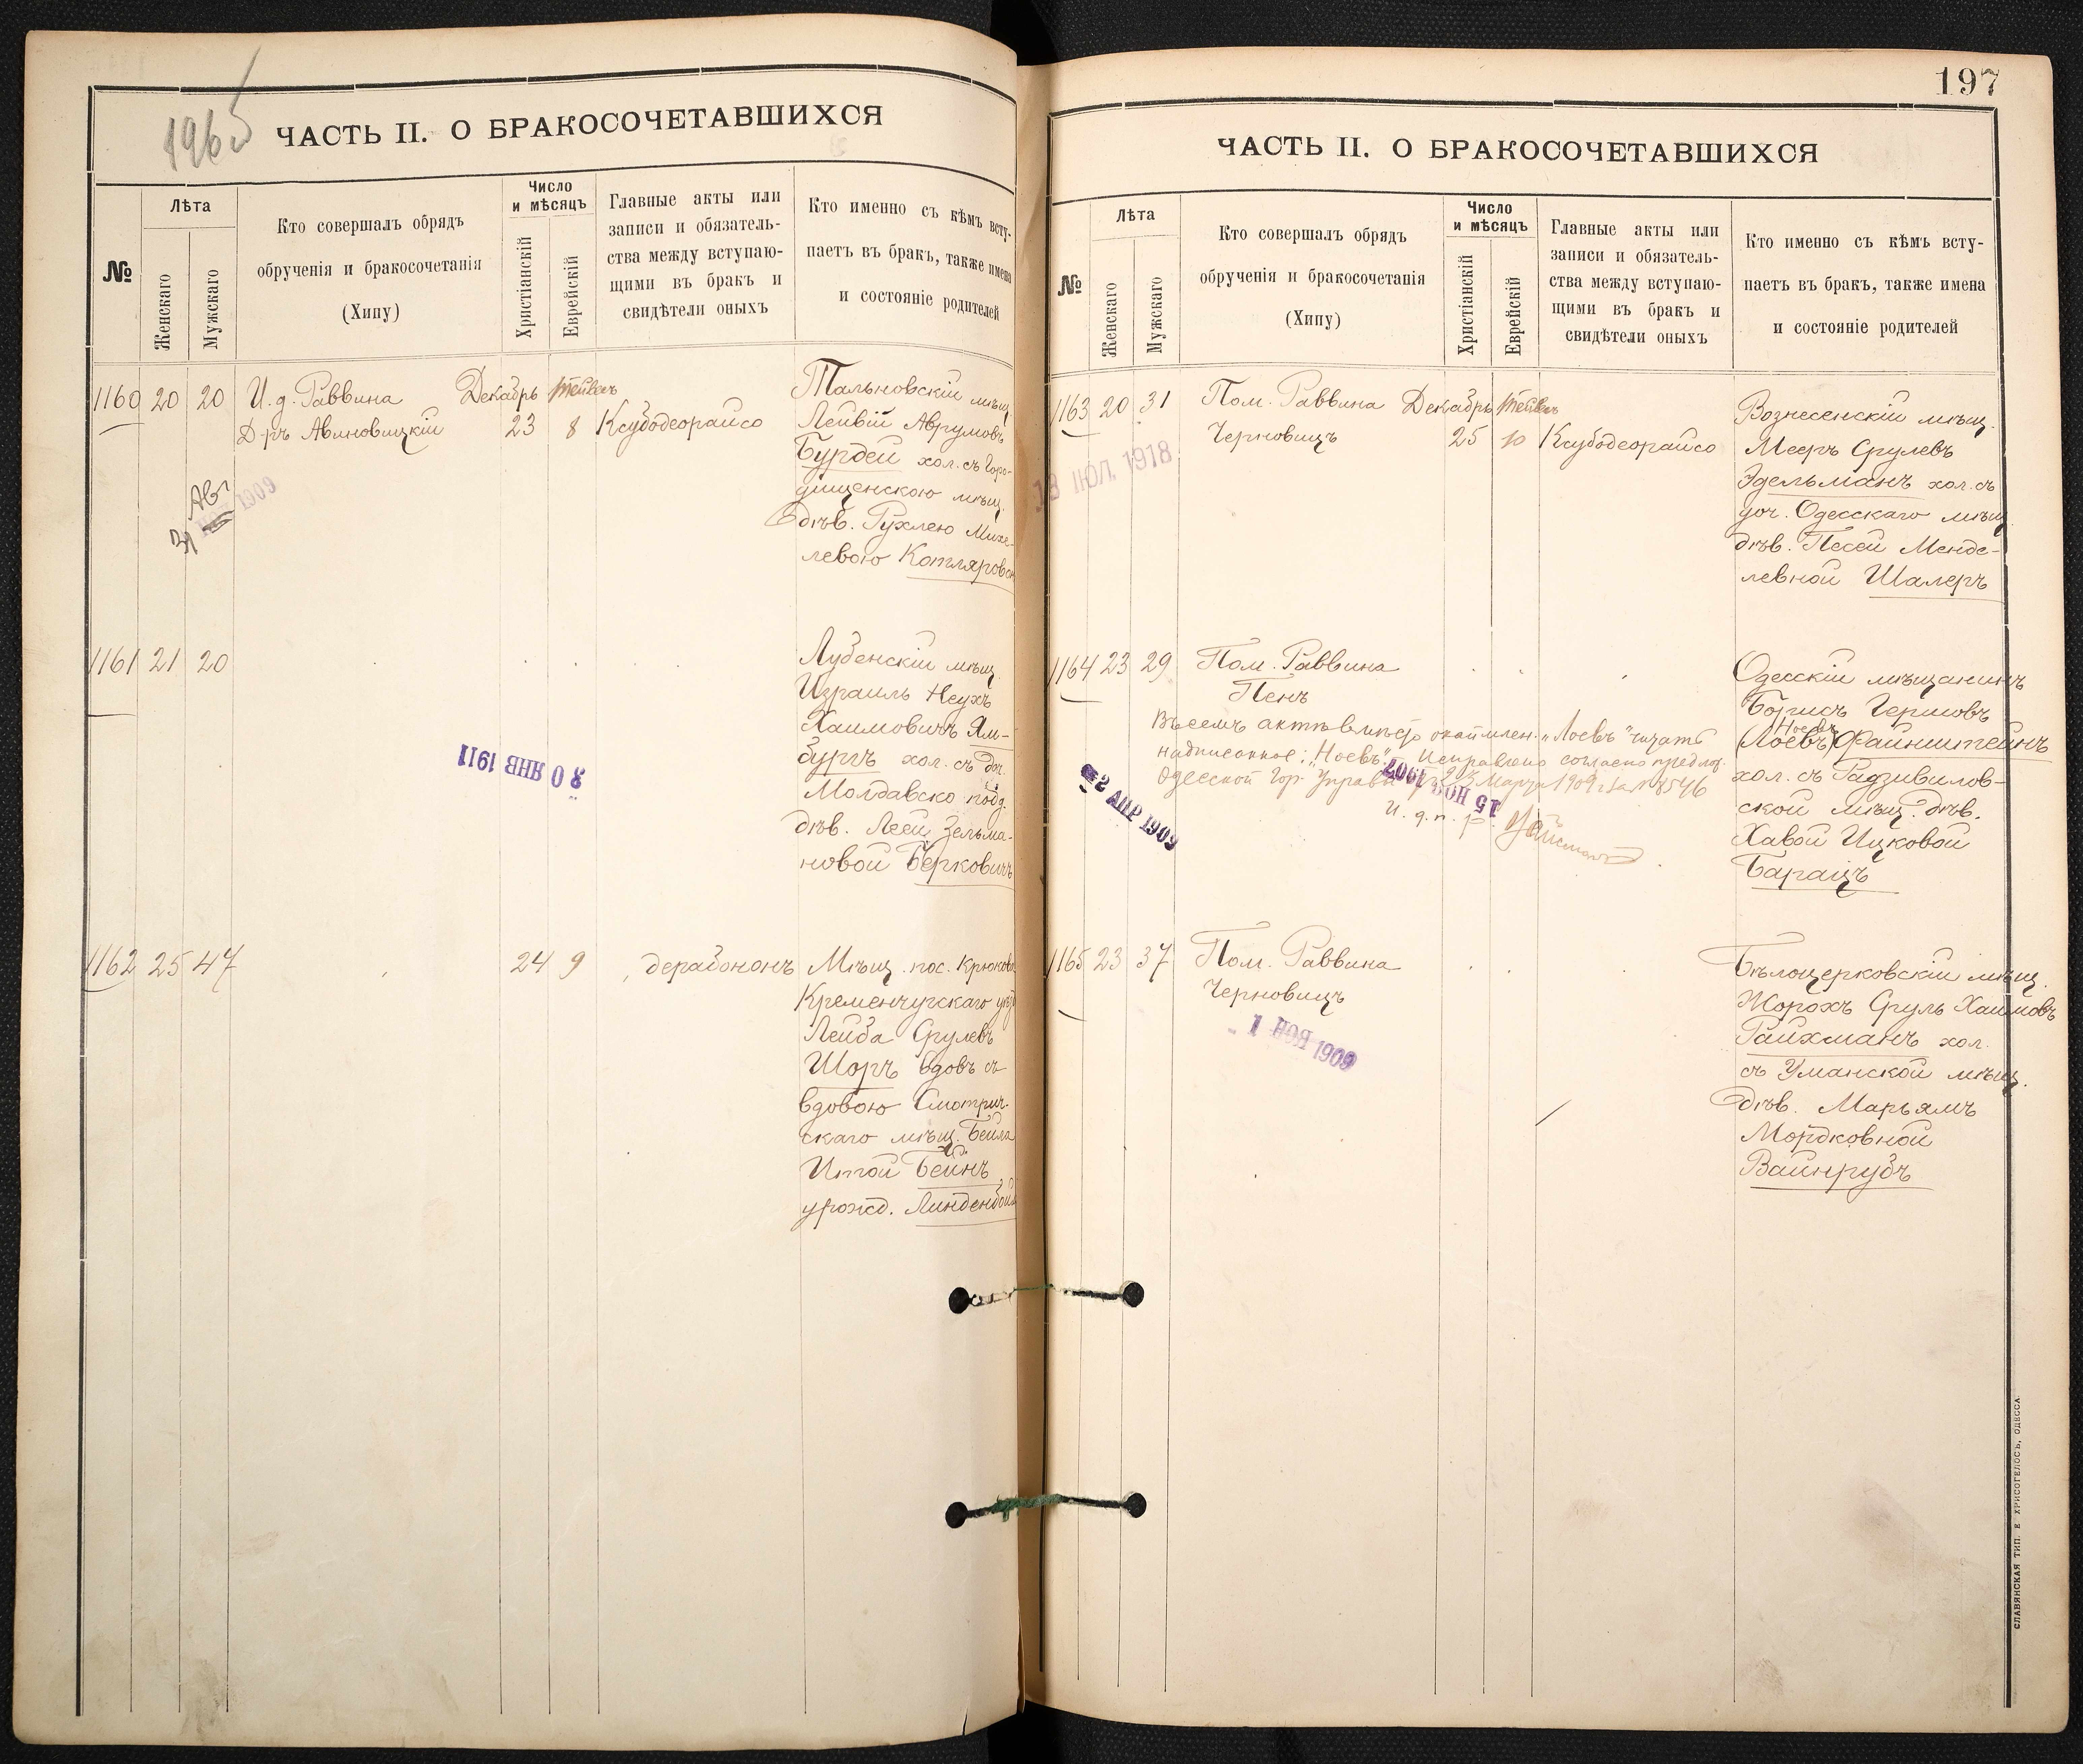 1965
ЧАСТЬ II. О БРАКОСОЧЕТАВШИХСЯ
№
Лѣта
Женскаго
Мужскаго
Кто совершалъ обрядъ
обрученія и бракосочетанія
(Хипу)
Число
и мѣсяцъ
Христіанскій
Еврейскій
Главные акты или
записи и обязатель-
ства между вступаю-
щими въ бракъ и
свидѣтели оныхъ
Кто именно съ кѣмъ всту-
паетъ въ бракъ, также имена
и состояніе родителей
1160 20 20 И. д. Раввина Декабрь Тейвесъ
Д-ръ Авиновицкій 23 8 Ксубодеорайсо
Тальновскій мѣщ.
Лейвій Аврумовъ
Бурдей хол. съ Горо-
дищенскою мѣщ.
дѣв. Рухлею Михе-
левою Котляровой
Авг
1909
1161 21 20
Лубенскій мѣщ.
Израиль Неухъ
Хаимовичъ Ям-
бургъ хол. съ доч.
Молдавско подд.
дѣв. Леей Зельма-
новой Берковичъ
30 ЯНВ 1911
1162 25 47 24 9 дерабононъ
Мѣщ. пос. Крюкова
Кременчугскаго уѣзд
Лейба Срулевъ
Шоръ вдовъ съ
вдовою Смотрич-
скаго мѣщ. Бейла
Итой Бейнъ
урожд. Линденбойм
197
ЧАСТЬ II. О БРАКОСОЧЕТАВШИХСЯ
№
Лѣта
Женскаго
Мужскаго
Кто совершалъ обрядъ
обрученія и бракосочетанія
(Хипу)
Число
и мѣсяцъ
Христіанскій
Еврейскій
Главные акты или
записи и обязатель-
ства между вступаю-
щими въ бракъ и
свидѣтели оныхъ
Кто именно съ кѣмъ всту-
паетъ въ бракъ, также имена
и состояніе родителей
1163 20 31 Пом. Раввина Декабрь Тейвесъ
Черновицъ 25 10 Ксубодеорайсо
13 ІЮЛ. 1918
Вознесенскій мѣщ.
Мееръ Срулевъ
Эдельманъ хол. съ
доч. Одесскаго мѣщ
дѣв. Песей Менде-
левной Шалеръ
1164 23 29 Пом. Раввина
Пенъ
Въ семъ актѣ вмѣсто окаймлен. "Лоевъ" читать
надписанное: "Ноевъ". Исправлено согласно предлож.
Одесской Гор. Управы 23 Марта 1909 г. за № 8546
И. д. п. р.
2 АПР 1909
15 НОЯ 1907
Одесскій мѣщанинъ
Борисъ Гершовъ
Ноевъ
(Лоевъ) Файнштейнъ
хол. съ Радзивилов-
ской мѣщ. дѣв.
Хавой Ицковой
Баращъ
1165 23 37 Пом. Раввина
Черновицъ
1 НОЯ 1909
Бѣлоцерковскій мѣщ.
Жорохъ Сруль Хаимовъ
Райхманъ хол.
съ Уманской мѣщ.
дѣв. Марьямъ
Мордковной
Вайнрубъ
СЛАВЯНСКАЯ ТИП. Е ХРИСОГЕЛОСЪ, ОДЕССА